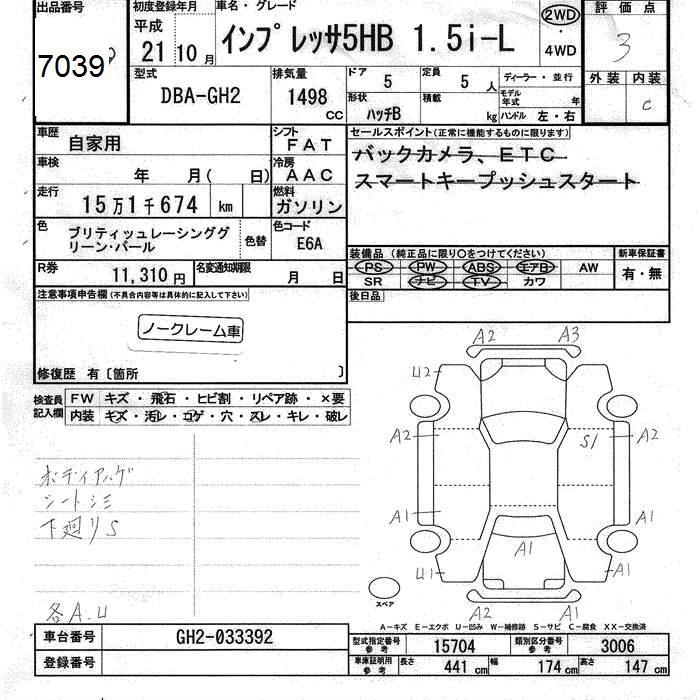 出品番号
7039
初度登録年月
平成
21 10月
車名・グレード
インプレッサ5HB 1.5i-L
2WD
・
4WD
評価点
3
型式
DBA-GH2
排気量
1498
CC
ドア
5
定員
5 人
形状
ハッチB
積載
kg
ディーラー・並行
モデル年式 年
ハンドル 左・右
外装 内装
C
車歴
自家用
シフト
FAT
車検
年 月( 日)
冷房
AAC
走行
15万1千674 km
燃料
ガソリン
色
ブリティッシュレーシンググリーン・パール
色替
色コード
E6A
R券
11,310円
名変通知期限
月 日
セールスポイント(正常に機能するものに限ります)
バックカメラ、ETC
スマートキープッシュスタート
装備品(純正品に限り○をつけてください)
新車保証書
PS PW ABS エアB AW
SR ナビ TV カワ
有・無
後日品
注意事項申告欄(不具合内容等は具体的に記入して下さい)
ノークレーム車
修復歴 有〔箇所 〕
検査員記入欄
FW キズ・飛石・ヒビ割・リペア跡・×要
内装 キズ・汚レ・コゲ・穴・スレ・キレ・破レ
シートシミ
下廻りS
各A.U
A2 A3
U2
A2 S1 A2
A1 A1
A1
U1 A1
A2 A1
スペア
A-キズ E-エクボ U-凹み W-補修跡 S-サビ C-腐食 XX-交換済
車台番号
GH2-033392
登録番号
型式指定番号
参考
15704
類別区分番号
参考
3006
車庫証明用
参考
長さ 441cm 幅 174cm 高さ 147cm